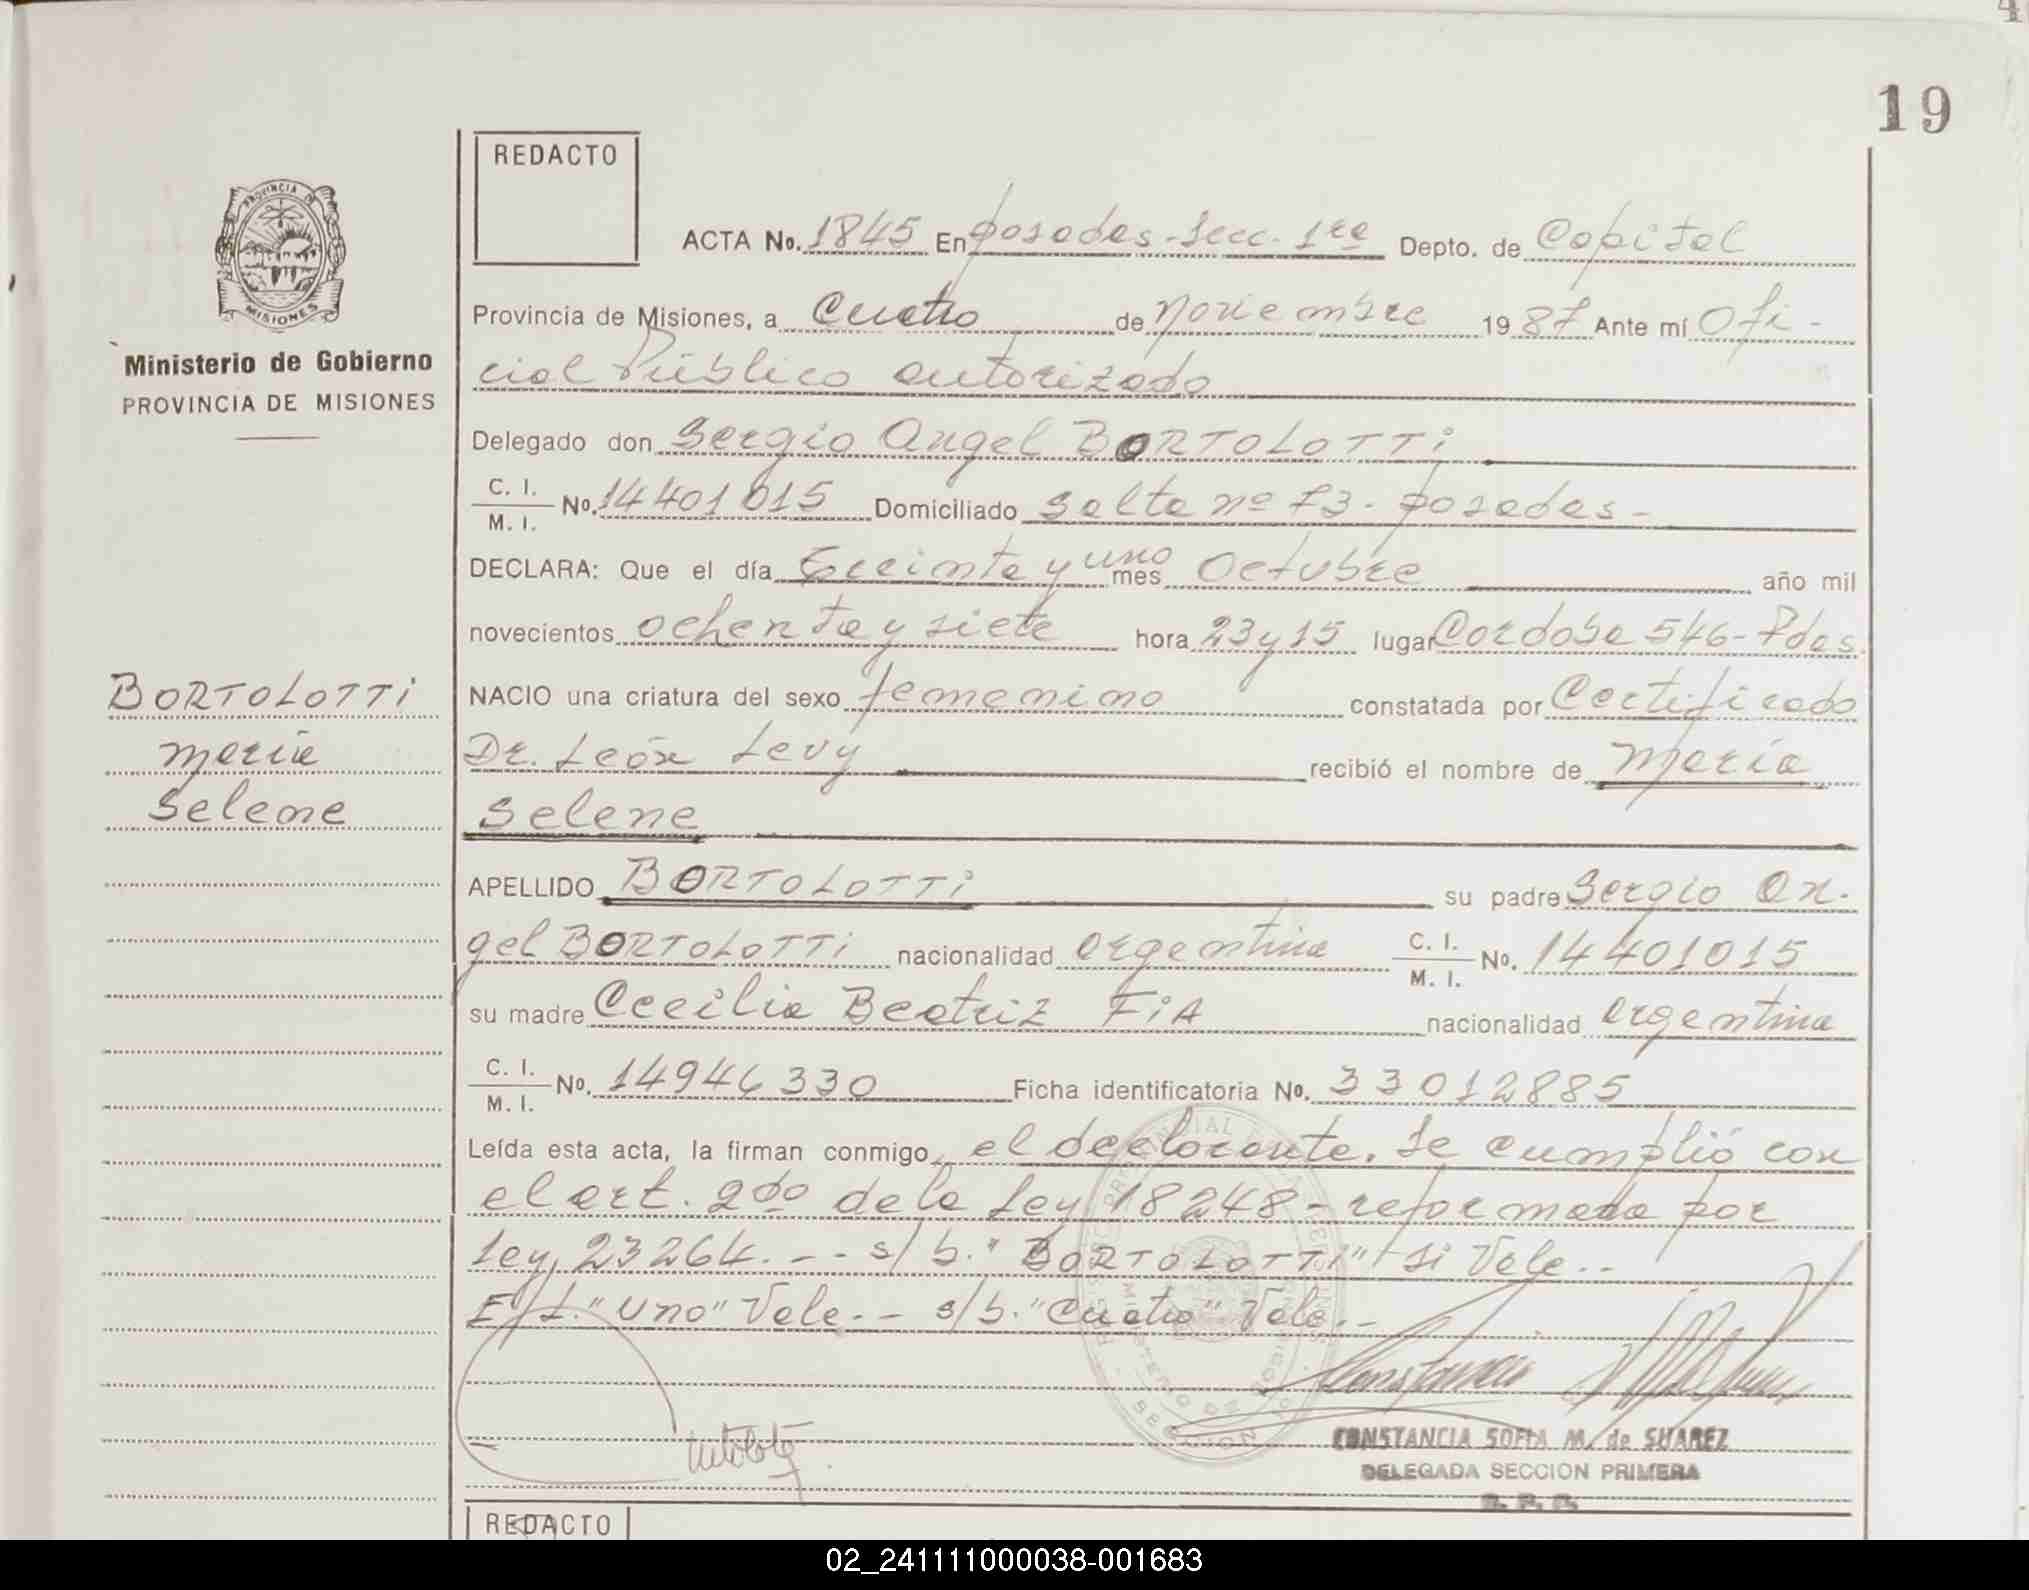 19
REDACTO
PROVINCIA DE
MISIONES
Ministerio de Gobierno
PROVINCIA DE MISIONES
ACTA No. 1845 En Posadas - Secc. 1ra Depto. de Capital
Provincia de Misiones, a Cuatro de Noviembre 1987 Ante mí Ofi-
cial Público autorizado
Delegado don Sergio Angel BORTOLOTTi
C. I.
M. I. No. 14401015 Domiciliado Salta nº 73 - Posadas -
DECLARA: Que el día treinta y uno mes Octubre año mil
novecientos ochenta y siete hora 23 y 15 lugar Cordoba 546 - Pdas.
NACIO una criatura del sexo femenino constatada por Certificado
Dr. León Levy recibió el nombre de María
Selene
APELLIDO BORTOLOTTi su padre Sergio An-
gel BORTOLOTTi nacionalidad argentina C. I.
M. I. No. 14401015
su madre Cecilia Beatriz FiA nacionalidad argentina
C. I.
M. I. No. 14946330 Ficha identificatoria No. 33012885
Leída esta acta, la firman conmigo, el declarante. Se cumplió con
el art. 2do de la Ley 18248 - reformada por
Ley 23264. - - s/b. "BORTOLOTTi" si Vale. -
E/L. "uno" Vale. - - s/b. "Cuatro" Vale. -
BORTOLOTTi
María
Selene
CONSTANCIA SOFIA M. de SUAREZ
DELEGADA SECCION PRIMERA
REDACTO
02_241111000038-001683